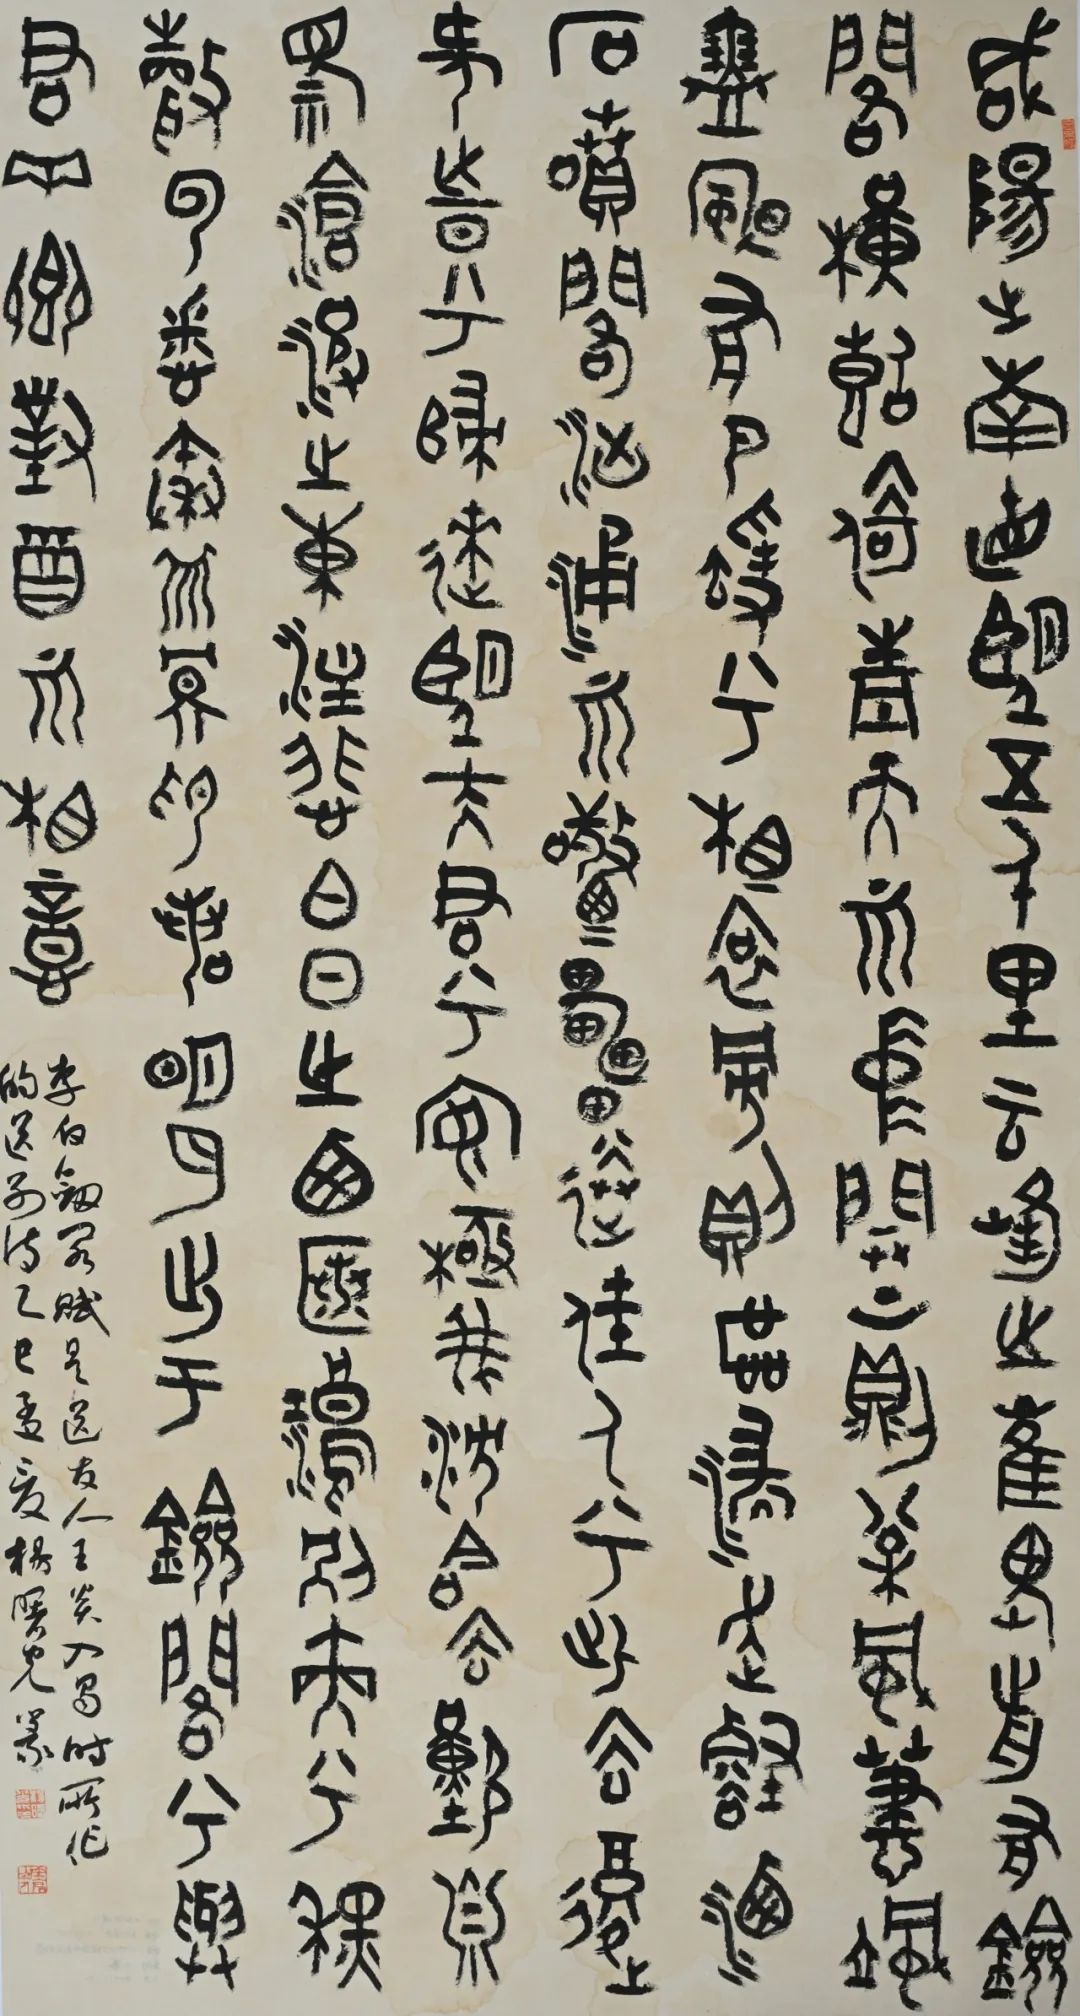 咸陽之南直望五千里云峰之崔嵬前有劍
閣橫斷倚青天而中開上則松風蕭颯
瑟颼有巴猿兮相哀旁則飛湍走壑灑
石噴閣洶涌而驚雷送佳人兮此去復
何時兮歸來望夫君兮安極我沉吟兮歎息
視滄波之東注悲白日之西匿鴻別燕兮秋
聲云愁秦而冥色若明月出于劍閣兮與
君兩鄉對酒而相憶
李白劍閣賦是送友人王炎入蜀時所作
的送別詩乙巳孟夏楊曙光篆